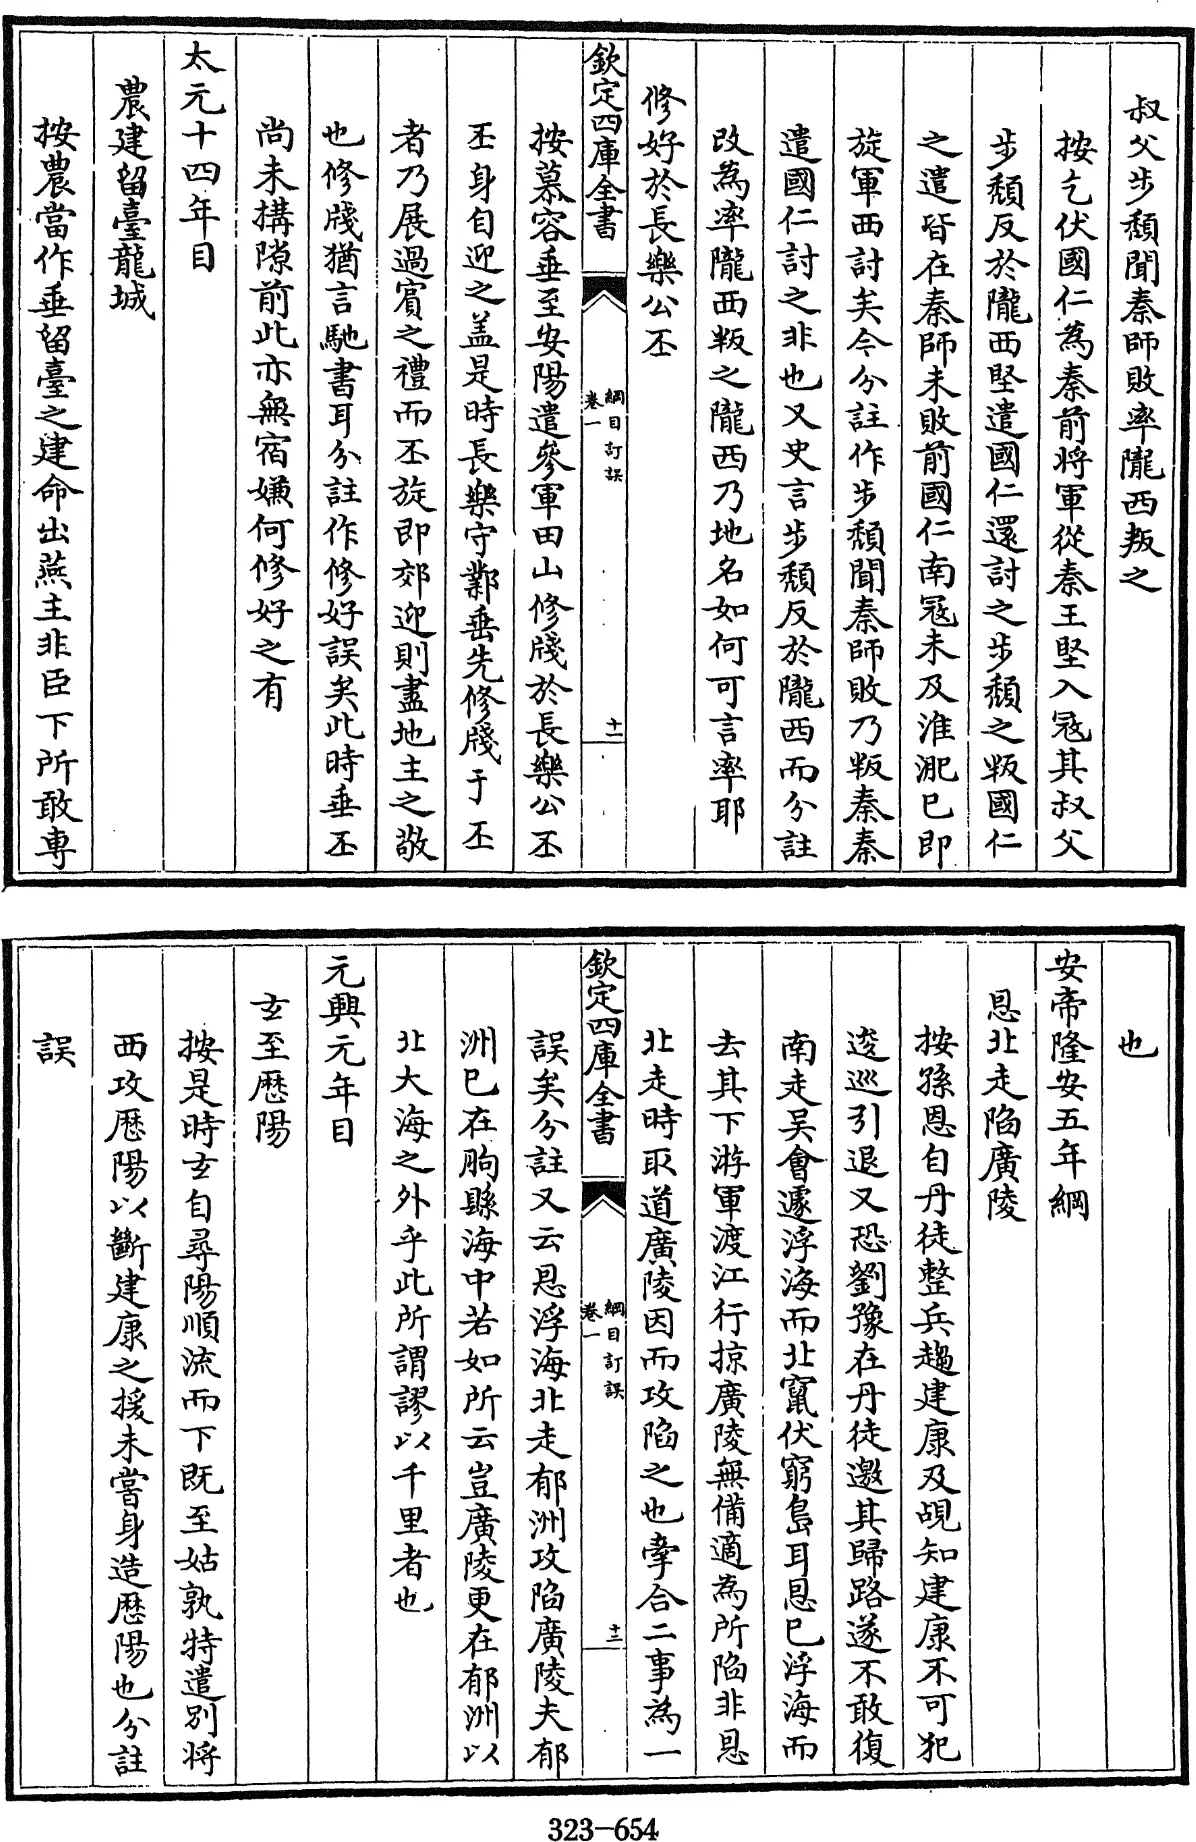 叔父步頹聞秦師敗率隴西叛之
按乞伏國仁為秦前將軍從秦王堅入冦其叔父
步頹反於隴西堅遣國仁還討之步頹之叛國仁
之遣皆在秦師未敗前國仁南冦未及淮淝巳即
旋軍西討矣今分註作步頹聞秦師敗乃叛秦秦
遣國仁討之非也又史言步頹反於隴西而分註
改為率隴西叛之隴西乃地名如何可言率耶
修好於長樂公丕
欽定四庫全書
綱目訂誤
卷一
十二
按慕容垂至安陽遣參軍田山修牋於長樂公丕
丕身自迎之盖是時長樂守鄴垂先修牋于丕
者乃展過賓之禮而丕旋即郊迎則盡地主之敬
也修牋猶言馳書耳分註作修好誤矣此時垂丕
尚未搆隙前此亦無宿嫌何修好之有
太元十四年目
農建留臺龍城
按農當作垂留臺之建命出燕主非臣下所敢專
也
安帝隆安五年綱
恩北走陷廣陵
按孫恩自丹徒整兵趨建康及覘知建康不可犯
逡巡引退又恐劉豫在丹徒邀其歸路遂不敢復
南走吴會遽浮海而北竄伏窮島耳恩巳浮海而
去其下游軍渡江行掠廣陵無備適為所陷非恩
北走時取道廣陵因而攻陷之也牽合二事為一
欽定四庫全書
綱目訂誤
卷一
十三
誤矣分註又云恩浮海北走郁洲攻陷廣陵夫郁
洲巳在朐縣海中若如所云豈廣陵更在郁洲以
北大海之外乎此所謂謬以千里者也
元興元年目
玄至歷陽
按是時玄自尋陽順流而下既至姑孰特遣別將
西攻歷陽以斷建康之援未嘗身造歷陽也分註
誤
323-654